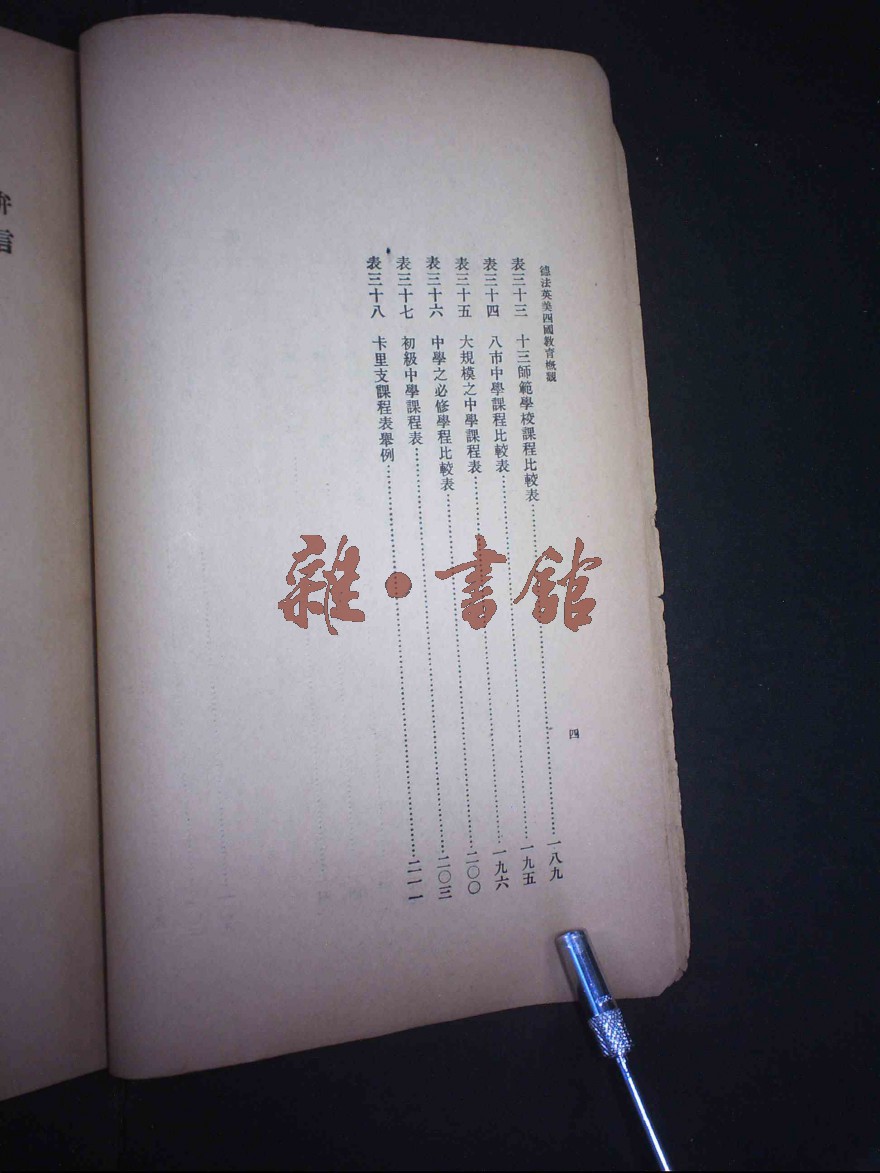 德法英美四國教育概觀 四
表三十三 十三師範學校課程比較表……一八九
表三十四 八市中學課程比較表……一九五
表三十五 大規模之中學課程表……一九六
表三十六 中學之必修學程比較表……二〇〇
表三十七 初級中學課程表……二〇三
表三十八 卡里支課程表舉例……二一一
雜·書館